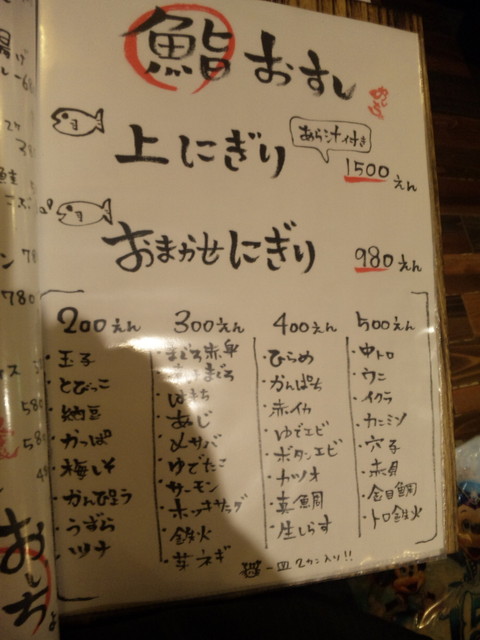 鮨 おすし
あら汁付き
上にぎり 1500えん
おまかせにぎり 980えん
200えん
・玉子
・とびっこ
・納豆
・かっぱ
・梅しそ
・かんぴょう
・うずら
・ツナ
300えん
・まぐろ赤身
まぐろ
・はまち
・あじ
・〆サバ
・ゆでたこ
・サーモン
・ホッキサラダ
・鉄火
・芽ネギ
400えん
・ひらめ
・かんぱち
・赤イカ
・ゆでエビ
・ボタンエビ
・カツオ
・真鯛
・生しらす
500えん
・中トロ
・ウニ
・イクラ
・カニミソ
・穴子
・赤貝
・金目鯛
・トロ鉄火
一皿 2カン入り!!
780
おしち